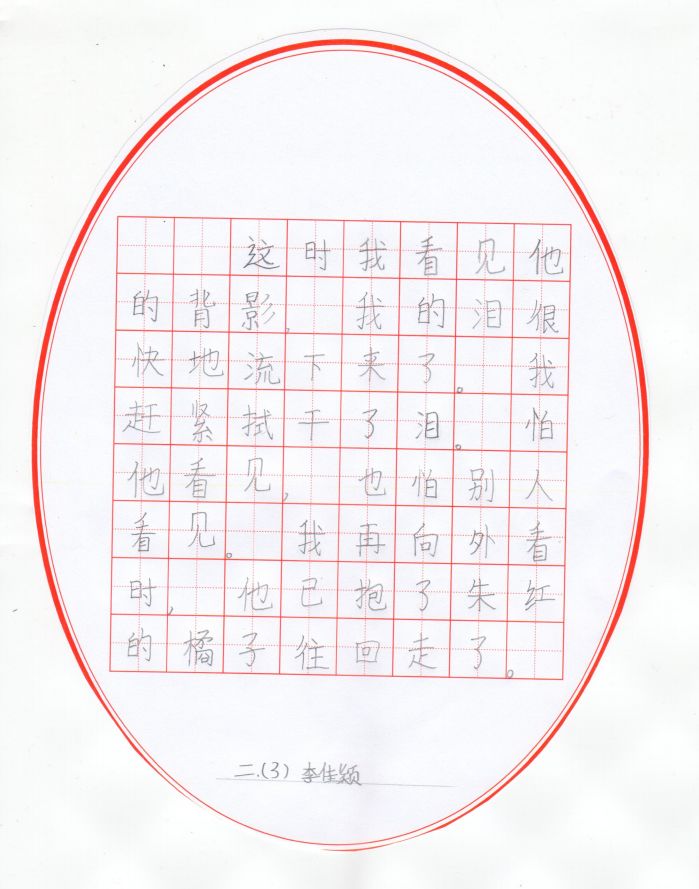 这时我看见他
的背影，我的泪很
快地流下来了。我
赶紧拭干了泪。怕
他看见，也怕别人
看见。我再向外看
时，他已抱了朱红
的橘子往回走了。
二.(3) 李佳颖